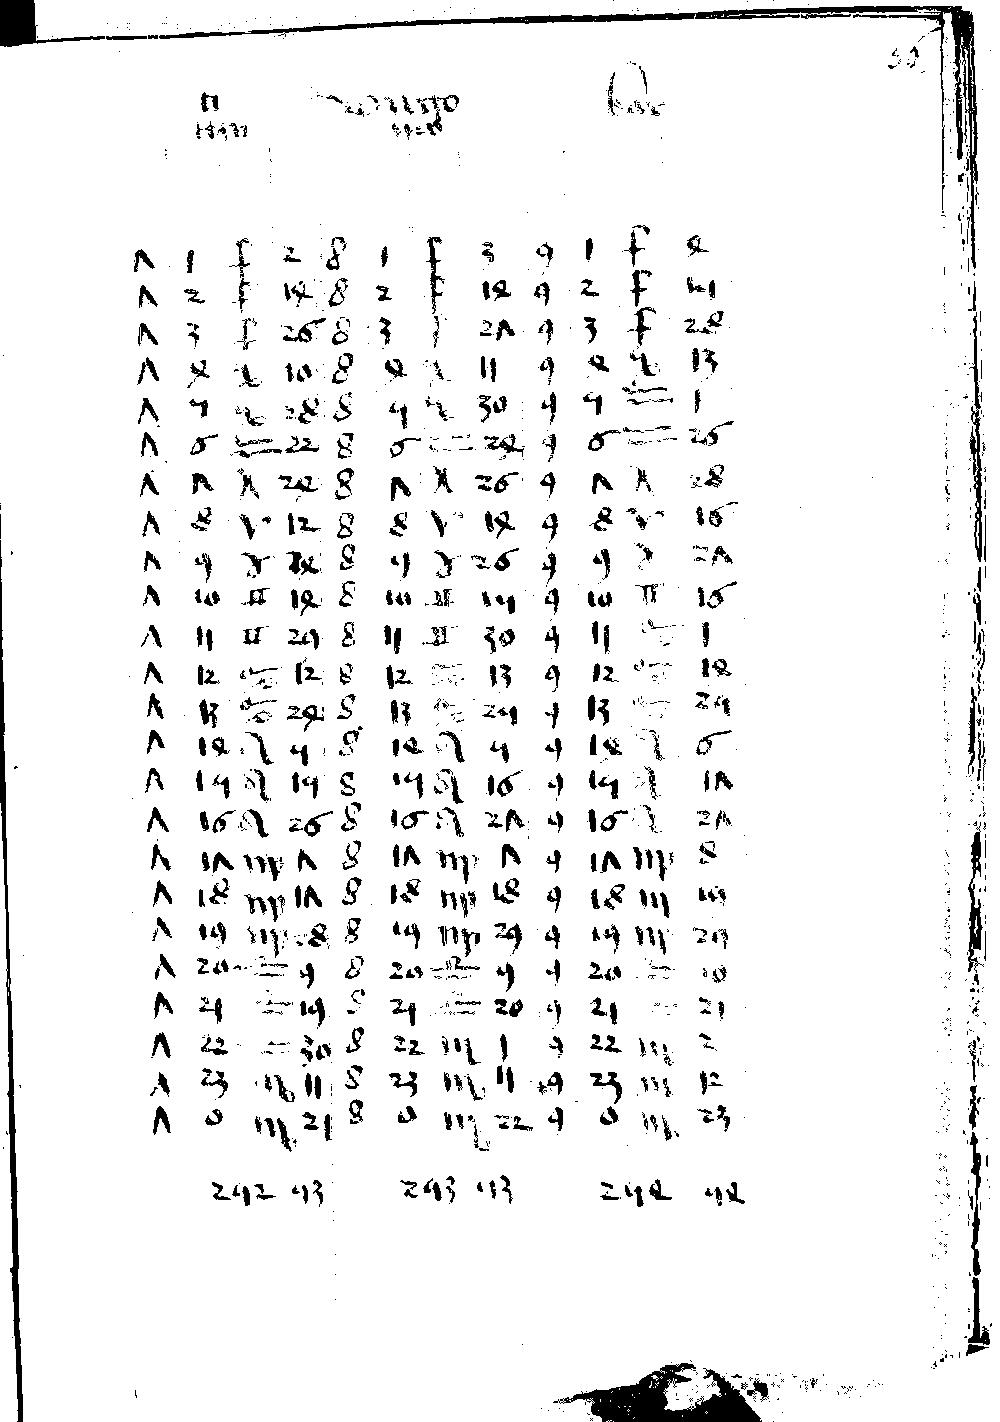 7 1 ♐ 2 8 1 ♐ 3 9 1 ♐ 4
7 2 ♐ 14 8 2 ♐ 14 9 2 ♐ 15
7 3 ♐ 26 8 3 ♐ 27 9 3 ♐ 28
7 4 ♑ 10 8 4 ♑ 11 9 4 ♑ 13
7 5 ♑ 28 8 5 ♑ 30 9 5 ♒ 1
7 6 ♒ 22 8 6 ♒ 24 9 6 ♒ 26
7 7 ♓ 24 8 7 ♓ 26 9 7 ♓ 28
7 8 ♈ 12 8 8 ♈ 14 9 8 ♈ 16
7 9 ♉ 24 8 9 ♉ 26 9 9 ♉ 27
7 10 ♊ 14 8 10 ♊ 15 9 10 ♊ 16
7 11 ♊ 29 8 11 ♊ 30 9 11 ♋ 1
7 12 ♋ 12 8 12 ♋ 13 9 12 ♋ 14
7 13 ♋ 24 8 13 ♋ 25 9 13 ♋ 25
7 14 ♌ 5 8 14 ♌ 5 9 14 ♌ 6
7 15 ♌ 15 8 15 ♌ 16 9 15 ♌ 17
7 16 ♌ 26 8 16 ♌ 27 9 16 ♌ 27
7 17 ♍ 7 8 17 ♍ 7 9 17 ♍ 8
7 18 ♍ 17 8 18 ♍ 18 9 18 ♍ 19
7 19 ♍ 28 8 19 ♍ 29 9 19 ♍ 29
7 20 ♎ 9 8 20 ♎ 9 9 20 ♎ 10
7 21 ♎ 19 8 21 ♎ 20 9 21 ♎ 21
7 22 ♎ 30 8 22 ♏ 1 9 22 ♏ 2
7 23 ♏ 11 8 23 ♏ 11 9 23 ♏ 12
7 0 ♏ 21 8 0 ♏ 22 9 0 ♏ 23
252 53 253 53 254 54